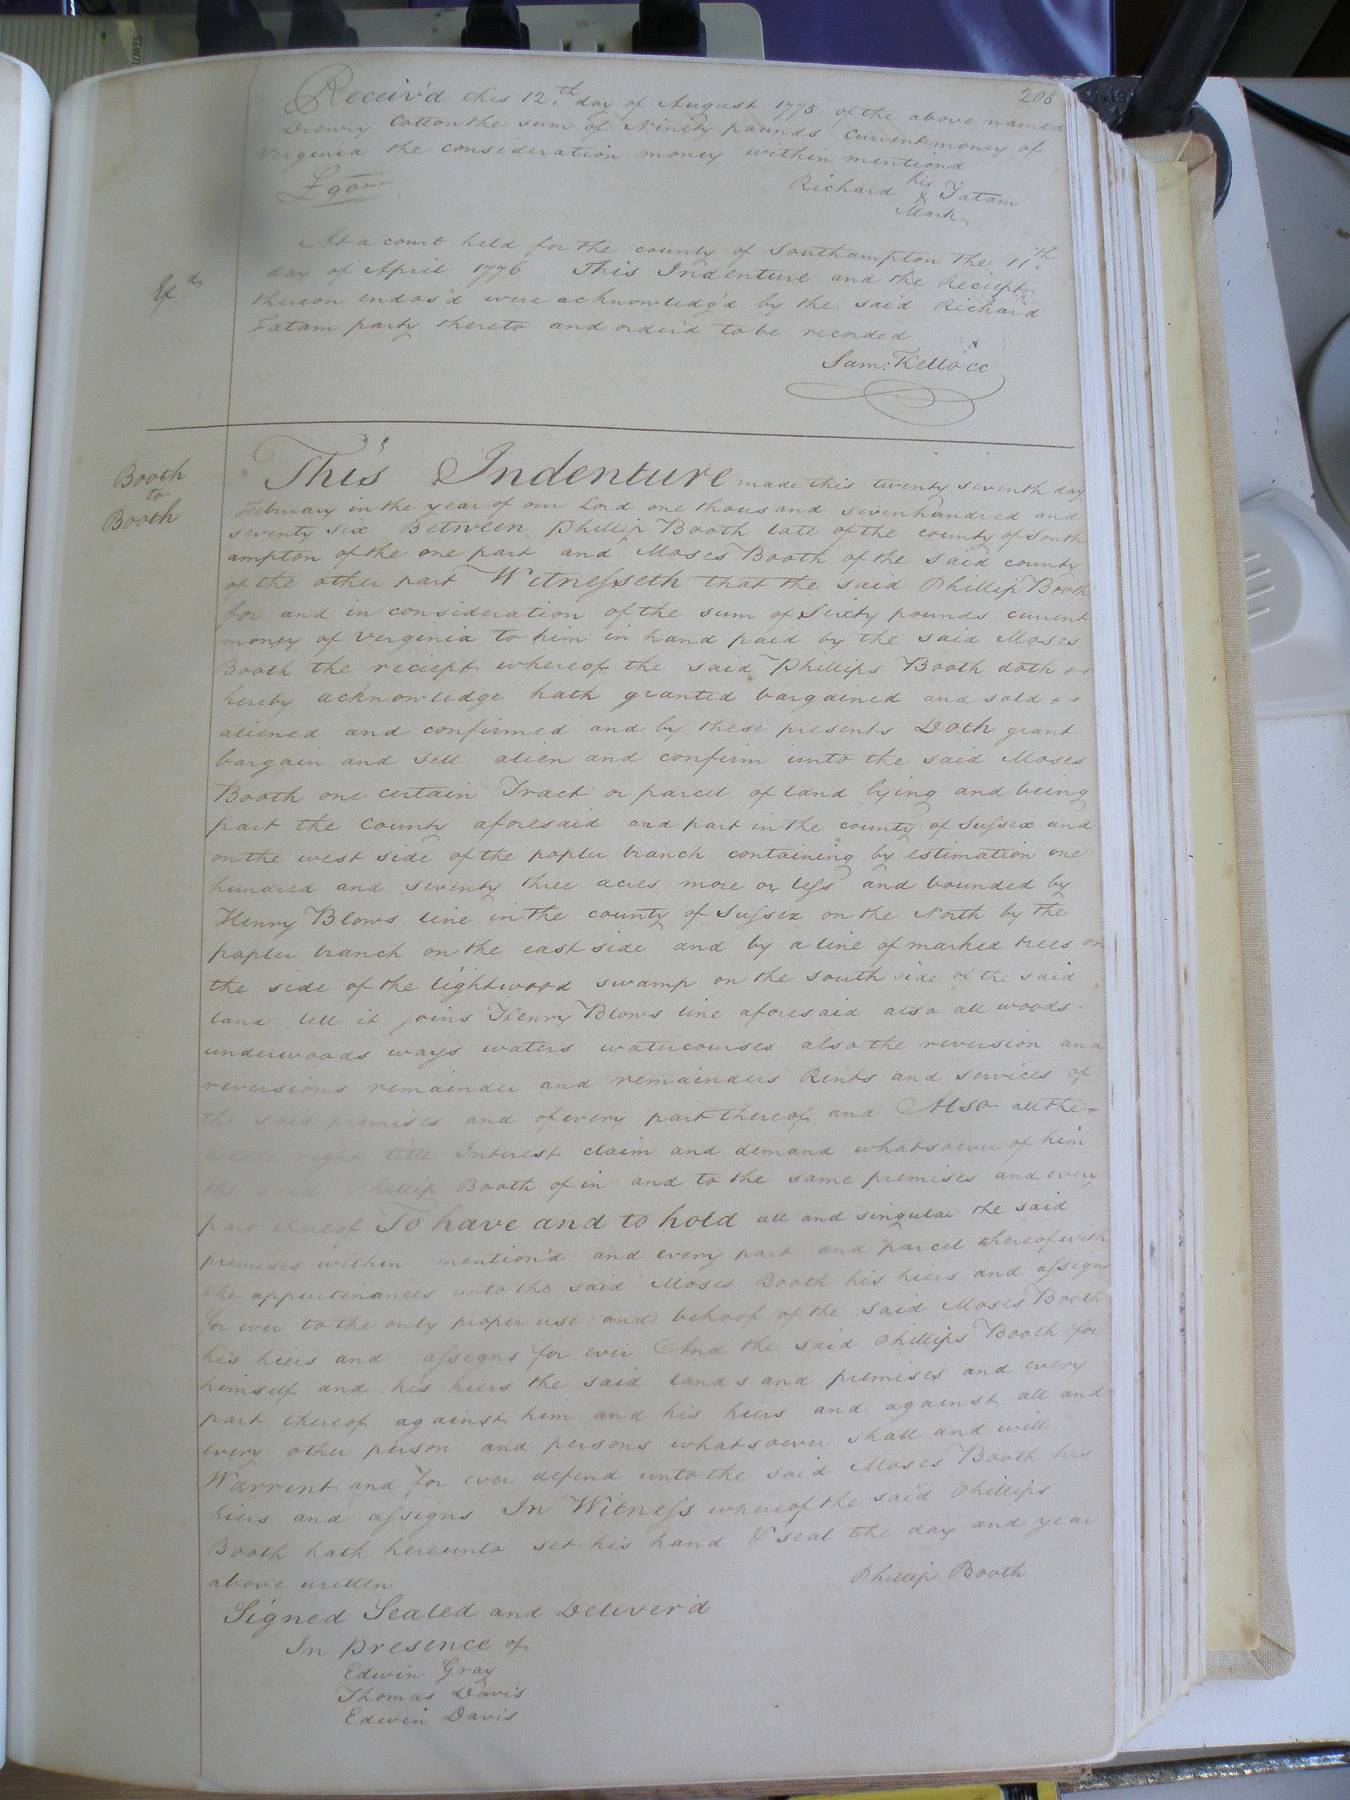 205
Receiv'd this 12.th day of August 1775 of the above named
Drewry Cotton the sum of Ninety pounds Current money of
Virginia the consideration money within mentiond
£90
Richard his Tatam
Mark
At a court held for the county of Southampton the 11th
day of April 1776 This Indenture and the Reciept
thereon endors'd were acknowledg'd by the said Richard
Tatam party thereto and order'd to be recorded
Sam: Kello CC
Booth
to
Booth
This Indenture made this twenty seventh day
February in the year of our Lord one thousand sevenhundred and
seventy six Between Phillip Booth late of the county of South
ampton of the one part and Moses Booth of the said county
of the other part Witnesseth that the said Phillip Booth
for and in consideration of the sum of Sixty pounds current
money of Verginia to him in hand paid by the said Moses
Booth the reciept whereof the said Phillips Booth doth
hereby acknowledge hath granted bargained and sold
aliened and confirmed and by these presents Doth grant
bargain and sell alien and confirm unto the said Moses
Booth one certain Tract or parcel of land lying and being
part the County aforesaid and part in the county of Sussex and
on the west side of the popler branch containing by estimation one
hundred and seventy three acres more or less and bounded by
Henry Blows line in the county of Sussex on the North by the
popler branch on the east side and by a line of marked trees on
the side of the lightword swamp on the south side of the said
land till it joins Henry Blows line aforesaid also all woods
underwoods ways waters watercourses also the reversion and
reversions remainder and remainders Rents and services of
the said premises and of every part thereof and Also all the
estate right title Interest claim and demand whatsoever of him
the said Phillip Booth of in and to the same premises and every
part thereof To have and to hold all and singular the said
premises within mention'd and every part and parcel thereof with
the appurtenances unto the said Moses Booth his hiers and assigns
for ever to the only proper use and behoof of the said Moses Booth
his hiers and assigns for ever And the said Phillips Booth for
himself and his hiers the said lands and premises and every
part thereof against him and his hiers and against all and
every other person and persons whatsoever shall and will
Warrent and for ever defend unto the said Moses Booth his
hiers and assigns In Witness whereof the said Phillips
Booth hath hereunto set his hand & seal the day and year
above written
Phillip Booth
Signed Sealed and Deliver'd
In presence of
Edwin Gray
Thomas Davis
Edwin Davis